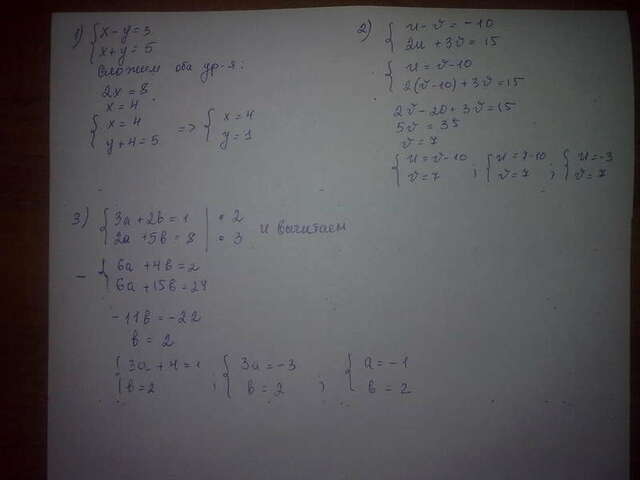 1) { x - y = 3
x + y = 5
Сложим оба ур-я:
2x = 8
x = 4
{ x = 4
y + 4 = 5 => { x = 4
y = 1
2) { u - v = -10
2u + 3v = 15
{ u = v - 10
2(v - 10) + 3v = 15
2v - 20 + 3v = 15
5v = 35
v = 7
{ u = v - 10
v = 7 ; { u = 7 - 10
v = 7 ; { u = -3
v = 7
3) { 3a + 2b = 1 | • 2
2a + 5b = 8 | • 3 и вычитаем
- { 6a + 4b = 2
6a + 15b = 24
-11b = -22
b = 2
{ 3a + 4 = 1
b = 2 ; { 3a = -3
b = 2 ; { a = -1
b = 2